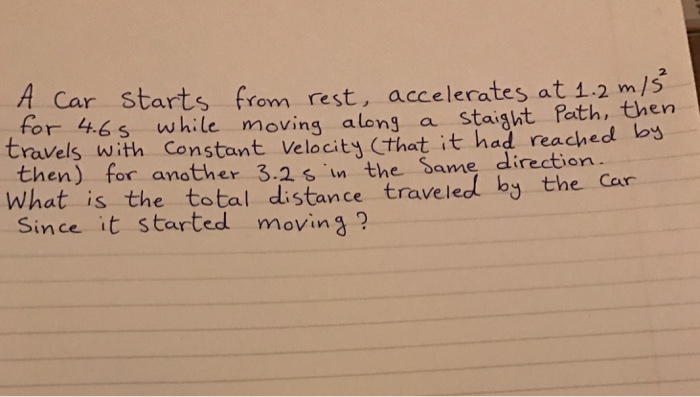 A Car Starts from rest, accelerates at 1.2 m/s²
for 4.6 s while moving along a staight Path, then
travels with Constant Velocity (that it had reached by
then) for another 3.2 s in the Same direction.
What is the total distance traveled by the Car
Since it started moving?